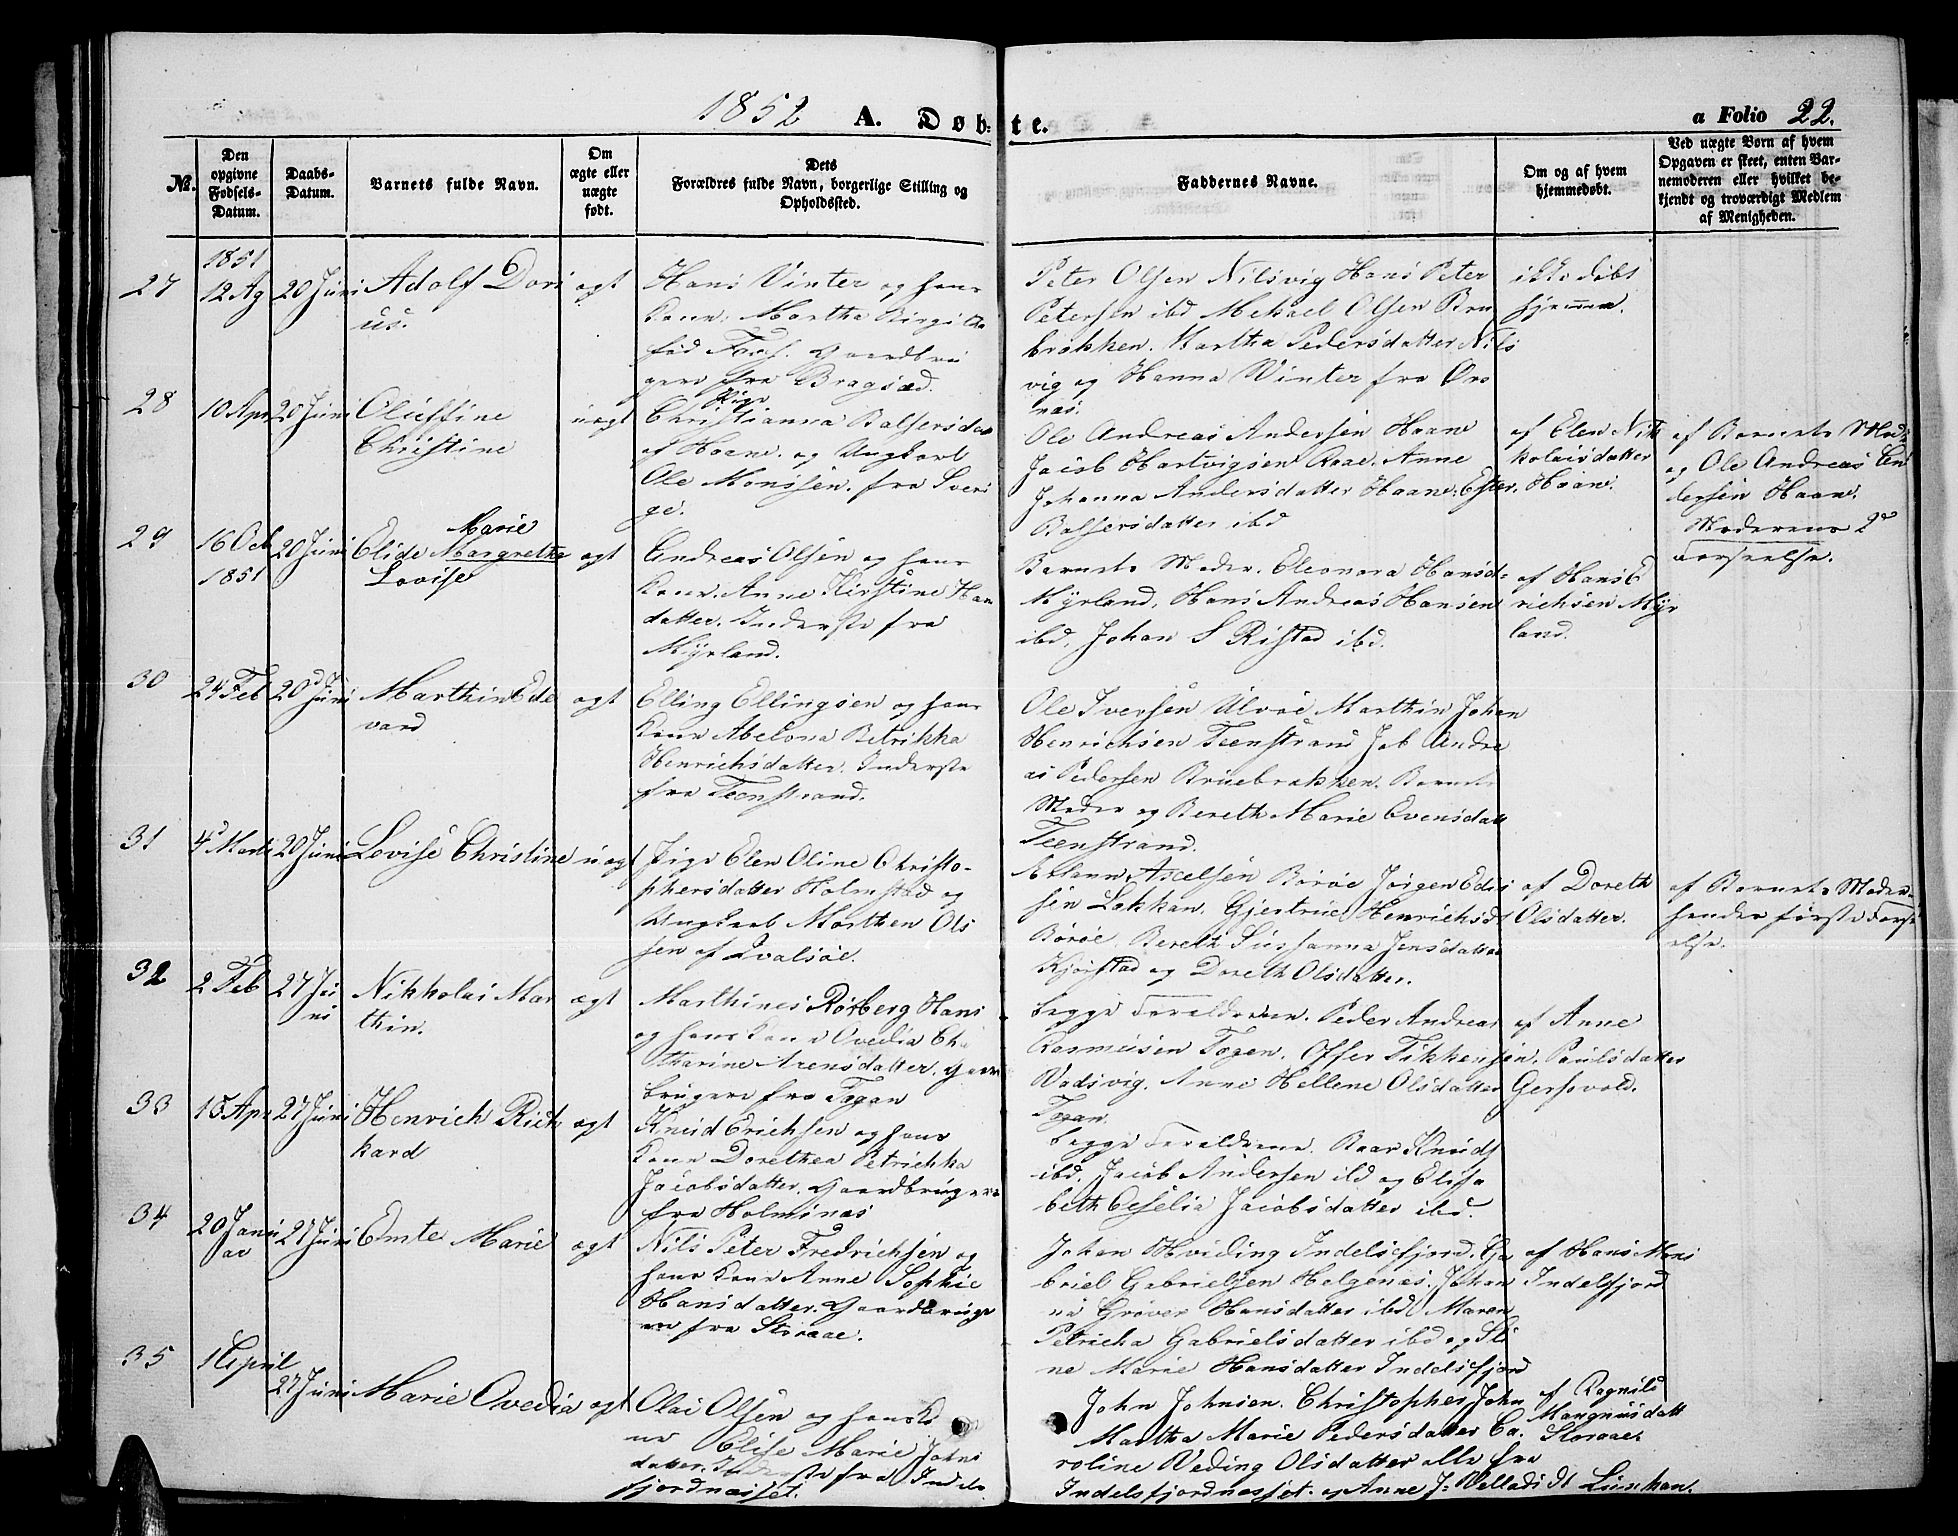 1852 A. Døbte. a Folio 22.
No.
Den opgivne Fødsels-Datum.
Daabs-Datum.
Barnets fulde Navn.
Om ægte eller uægte født.
Dets Forældres fulde Navn, borgerlige Stilling og Opholdssted.
Faddernes Navne.
Om og af hvem hjemmedøbt.
Ved uægte Børn af hvem Opgaven er skeet, enten Barnemoderen eller hvilket bekjendt og troværdigt Medlem af Menigheden.
27
1851
12 Ag
20 Juni
Adolf Dori
us.
ægt
Hans Vinter og hans
Kone. Martha Birgi
Gaardbru
gere fra Bragsæd.
Peter Olsen Nilsvig Hans Peter
Petersen ibd Mekael Olsen Bru
brakken. Martha Pedersdatter Nils
vig og Hanna Vinter fra Øros
næs.
ikke døbt
hjemme.
28
10 Apr
20 Juni
Oluffine
Christine
uægt
Pige
Christianna Balsersda
af Haane. og Ungkarl
Ole Monssen. fra Sveri
ge.
Ole Andreas Andersen Haane
Jacob Hartvigsen Raae. Anne
Johanna Andersdatter Haane. Ester.
Balsersdatter ibd
af Elen Nik
kolaisdatter
Haane.
af Barnets Mod
og Ole Andreas An
dersen Haane.
Moderens 2d
Forseelse.
29
16 Oct
1851
20 Juni
Marie
Elide Margrethe
Lovise
ægt
Andreas Olsen og hans
Kone. Anne Kirstine Han
datter. Inderste fra
Myrland.
Barnets Moder. Eleonora Hansd
Myrland, Hans Andreas Hansen
ibd, Johan S Ristad ibd.
af Hans E
richsen Myr
land.
30
24 Feb
20d Juni
Marthin Ede
vard
ægt
Elling Ellingsen og hans
Kone Abelona Petrikka
Henrichsdatter. Inderste
fra Teenstrand.
Ole Iversen Ulvøe Marthin Johan
Henrichsen Teenstrand Job Andre
as Pedersen Bruebrakken. Barnets
Moder og Bereth Marie Evensdatt
Teenstrand.
31
4d Marti
20 Juni
Lovise Christine
uægt
Pige Elen Oline Christo-
phersdatter Holmstad og
Ungkarl Morthen Ols
sen af Qvalsøe.
Axelsen Børøe Jørgen Edis
sen Lakkan. Gjertrue Henrichsdt
Børøe, Bereth Sussanna Jensdatter
Kjørstad og Doreth Olsdatter.
af Doreth
Olsdatter.
af Barnets Moder
hendes første Forse
else.
32
2 Feb
27 Ju
ni
Nikkolai Mar
thin.
ægt
Marthines Rosberg Hans
og hans Kone Ovedia Cha
tharine Arensdatter. Gaard
brugere fra Tøgan
begge Forældrene. Peder Andreas
Rasmusen Tøgen. Offer Tikkensen.
Vadsvig. Anne Hellene Olsdatter
Tøgan.
af Anne
Paulsdatter
Gersvold.
33
15 Apr
27 Juni
Henrich Rich
hard
ægt
Knud Erichsen og hans
Kone Dorethea Petrickka
Jacobsdatter. Gaardbrugere
fra Holmsnæs
begge Forældrene. Roar Knuds
ibd. Jacob Andersen ibd og Elisa
beth Cesselia Jacobsdatter ibd.
34
20 Janu
ar
27 Juni
Emte Marie
ægt
Nils Peter Fredrichsen og
hans Kone Anne Sophie
Hansdatter. Gaardbruge
re fra Storaae.
Johan Hviding Indelsfjord. Ga
briel Gabrielsen Helgenæs. Johan
na Grøver Hansdatter ibd Maren
Petricka Gabrielsdatter ibd og Sti
ne Marie Hansdatter Indelsfjord
af Hans Mons
Indelsfjord
35
1 April
27 Juni
Marie Ovedia
ægt
Olai Olsen og hans Ko
ne Elise Marie Johns
datter. Inderste fra Indels
fjordnæsset.
John Johnsen. Christopher John
Martha Marie Pedersdatter Ca.
roline Veding Olsdatter alle fra
Indelsfjordnæsset. og Anne J:
af Ragnild
Mangnusdatt
Storaae.